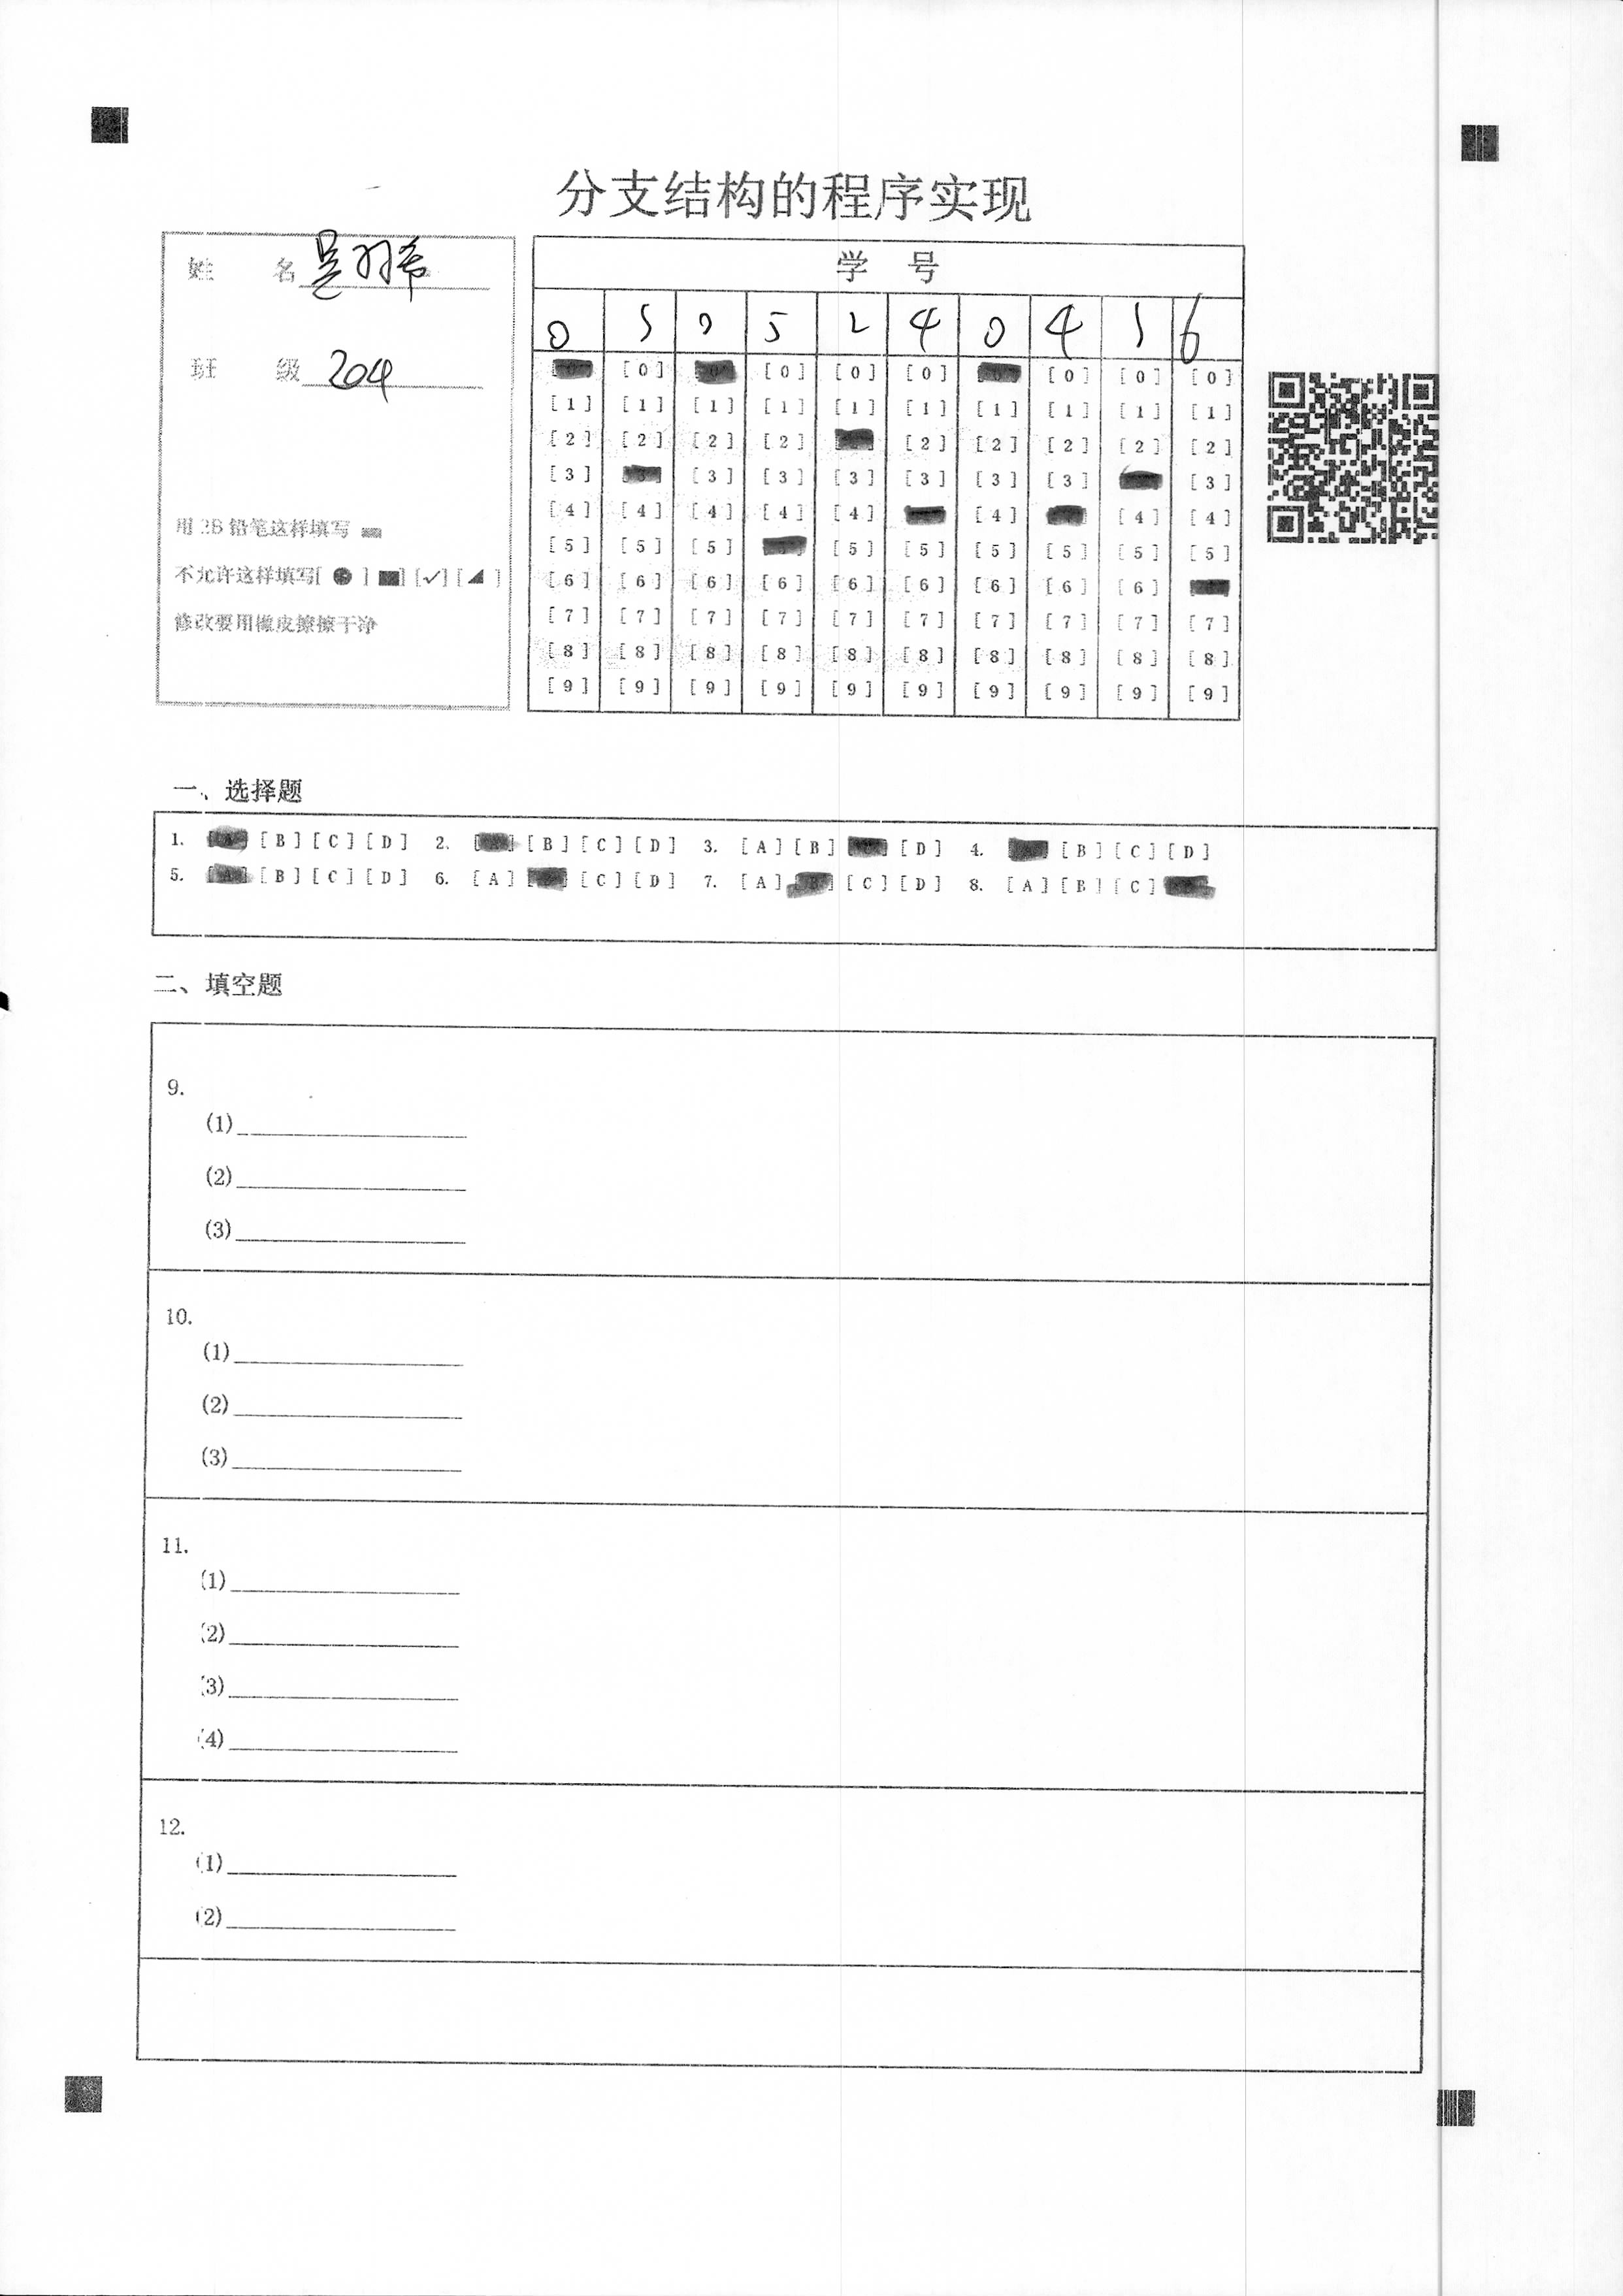 分支结构的程序实现
姓 名 是羽希
班 级 204
用 2B 铅笔这样填写
不允许这样填写[ ● ] [✓] [ ]
修改要用橡皮擦擦干净
学 号
0 3 0 5 2 4 0 4 3 6
[0] [0] [0] [0] [0] [0] [0]
[1] [1] [1] [1] [1] [1] [1] [1] [1] [1]
[2] [2] [2] [2] [2] [2] [2] [2] [2]
[3] [3] [3] [3] [3] [3] [3] [3]
[4] [4] [4] [4] [4] [4] [4] [4]
[5] [5] [5] [5] [5] [5] [5] [5] [5]
[6] [6] [6] [6] [6] [6] [6] [6] [6]
[7] [7] [7] [7] [7] [7] [7] [7] [7] [7]
[8] [8] [8] [8] [8] [8] [8] [8] [8] [8]
[9] [9] [9] [9] [9] [9] [9] [9] [9] [9]
一、选择题
1. [A] [B] [C] [D] 2. [B] [C] [D] 3. [A] [B] [D] 4. [B] [C] [D]
5. [A] [B] [C] [D] 6. [A] [C] [D] 7. [A] [B] [C] [D] 8. [A] [B] [C]
二、填空题
9.
(1)
(2)
(3)
10.
(1)
(2)
(3)
11.
(1)
(2)
(3)
(4)
12.
(1)
(2)